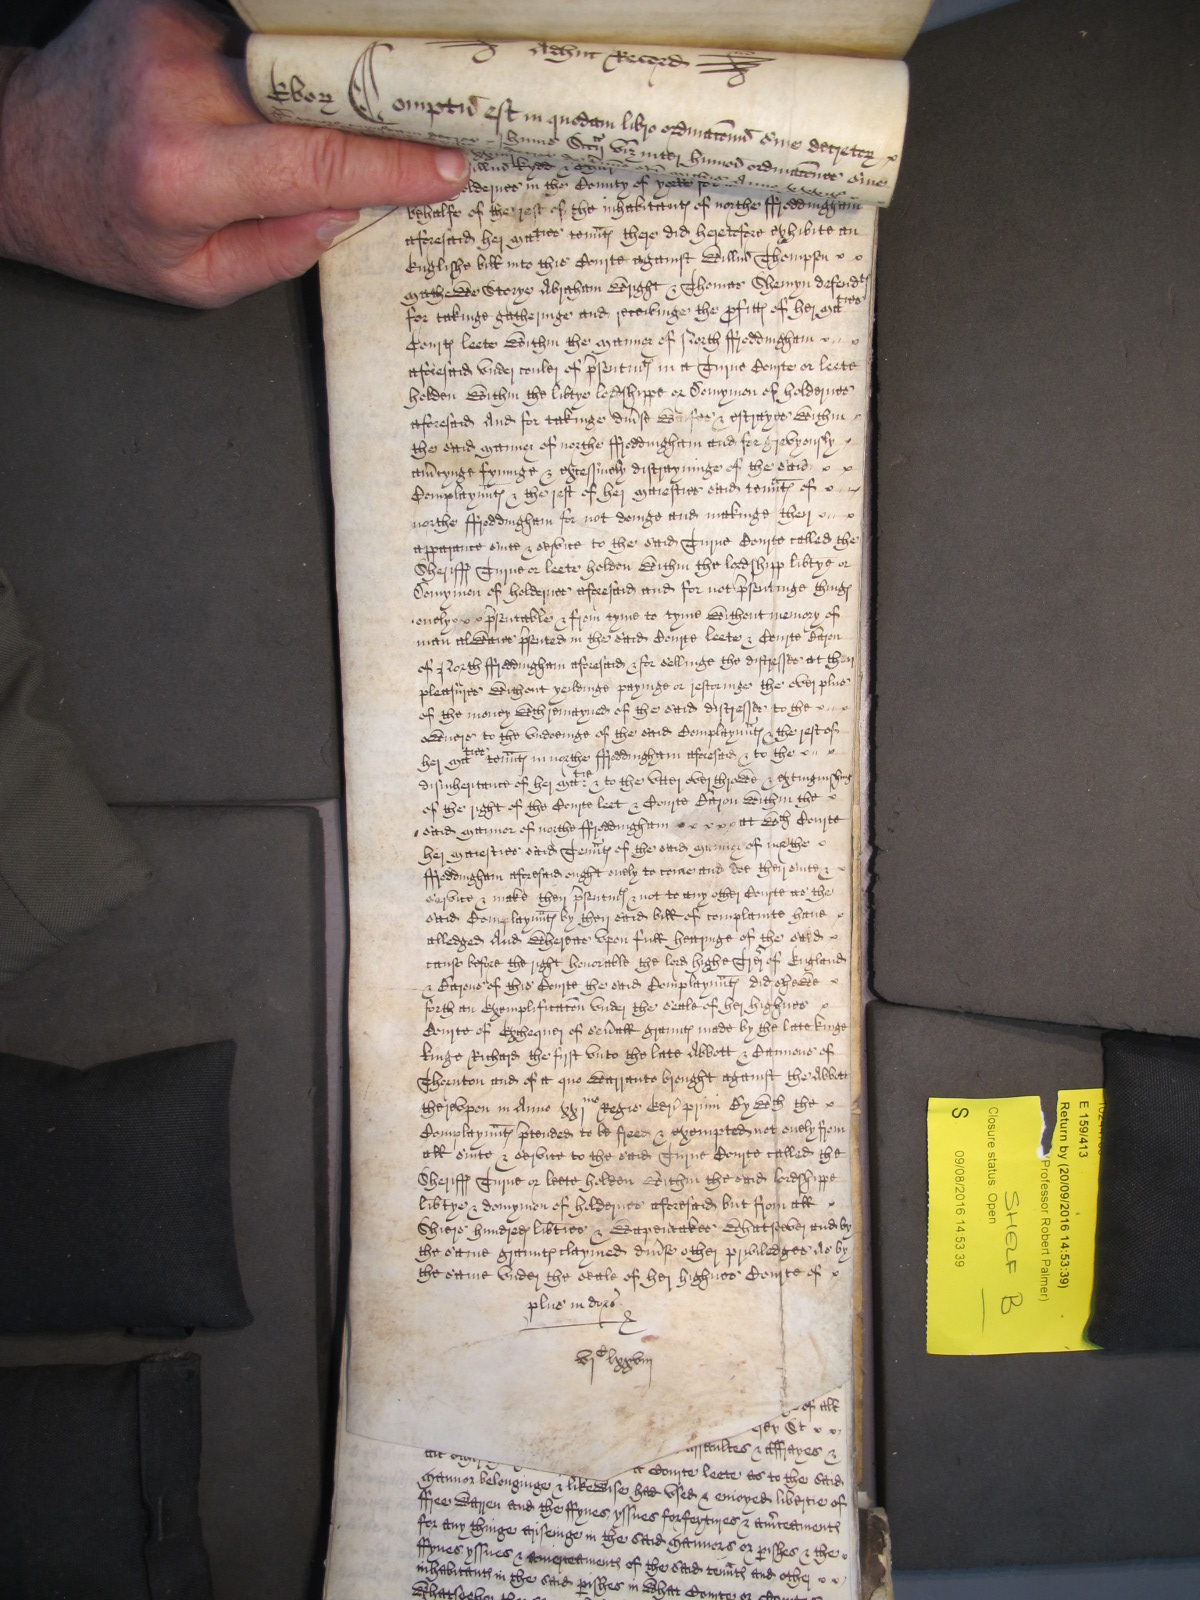 Adhuc Record
Ebor Comptu est in quodam libro ordinaconu sive decretor x
hums Sccij viz inter humoi ordinacones sive
holdernes in the County of yorke for
behalfe of the rest of the inhabitant of northe ffroddingham
aforesaid her maties tennt there did heretofore exhibite an
Englishe bill into this Courte against Willm Thompson x x
mathewe Storye Abraham Wright & Thomas Shemyn defendt
for takinge gatheringe and receivinge the profitt of her maties
Court leete Within the mannor of North ffroddingham
aforesaid under couler of psentmt in a Turne Courte or leete
holden Within the libtye lordshippe or Domynion of holdernes
aforesaid And for takinge divse Waifes & estrayes Within
the said mannor of northe ffroddingham and for grevyously
amcynge fyninge & excessively distrayninge of the said x x
Complaynnt & the rest of her maiesties said tennt of
northe ffroddingham for not doinge and makinge their
apparance suite & service to the said Turne Courte called the
Sheriff Turne or leete holden Within the lordshipp libtye or
Domynion of holdernes aforesaid and for not psentinge thing
onely x x psentable & from tyme to tyme Without memory of
man alwaies psented in the said Courte leete & Courte Baron
of North ffroddingham aforesaid & for sellinge the distresses at their
pleasures Without yeildinge payinge or restoringe the over plus
of the money Wch remayned of the said distresses to the
owners to the undoeinge of the said Complaynnt & the rest of
her maties tennt in northe ffroddingham aforesaid & to the
disinheritance of her matie & to the utter overthrowe & extinguishing
of the right of the Courte leet & Courte Baron Within the x
said mannor of northe ffroddingham x x x x at Wch Courte
her maiesties said Tennt of the said mannor of northe x
ffroddingham aforesaid ought onely to come and doe their suite &
service & make their psentmt & not to any other Courte as the
said Complaynnt by their said bill of complainte have
alledged And Whereas upon full hearinge of the said x
cause before the right honorable the lord highe Trer of England
& Barons of this Courte the said Complaynnt did shewe x
forth an Exemplificacon under the seale of her highnes
Courte of Exchequer of sevall grannt made by the late kinge
kinge Richard the first unto the late Abbott & Cannons of
Thornton and of a quo Warranto brought against the Abbot
thereupon in Anno xximo Regis Edri primi By Wch the x
Complaynnt ptended to be free & exempted not onely from
all suite & service to the said Turne Courte called the
Sheriff Turne or leete holden Within the said lordshippe
libtye & domynion of holdernes aforesaid but from all
Shiers hundred libties & Wapentakes Whatsoever and by
the same grannt claymed divse other priviledges As by
the same under the seale of her highnes Courte of x
plus in dorso
vjc lxxviij
of all
assaultes & affrayes &
Courte leete as to the said
mannor belonginge & likewise had used & enjoyed libertie of
ffree Warren and the ffynes yssues forfeytures & amcement
for any thinge ariseinge in the said mannors or pishes & the
ffynes yssues & amerceament of the said tennt and other x x
inhabitant in the said pishes in What Courte or
Whatsoever the
E 159/413
Return by (20/09/2016 14:53:39)
(Professor Robert Palmer)
SHELF B
Closure status: Open
S 09/08/2016 14:53:39